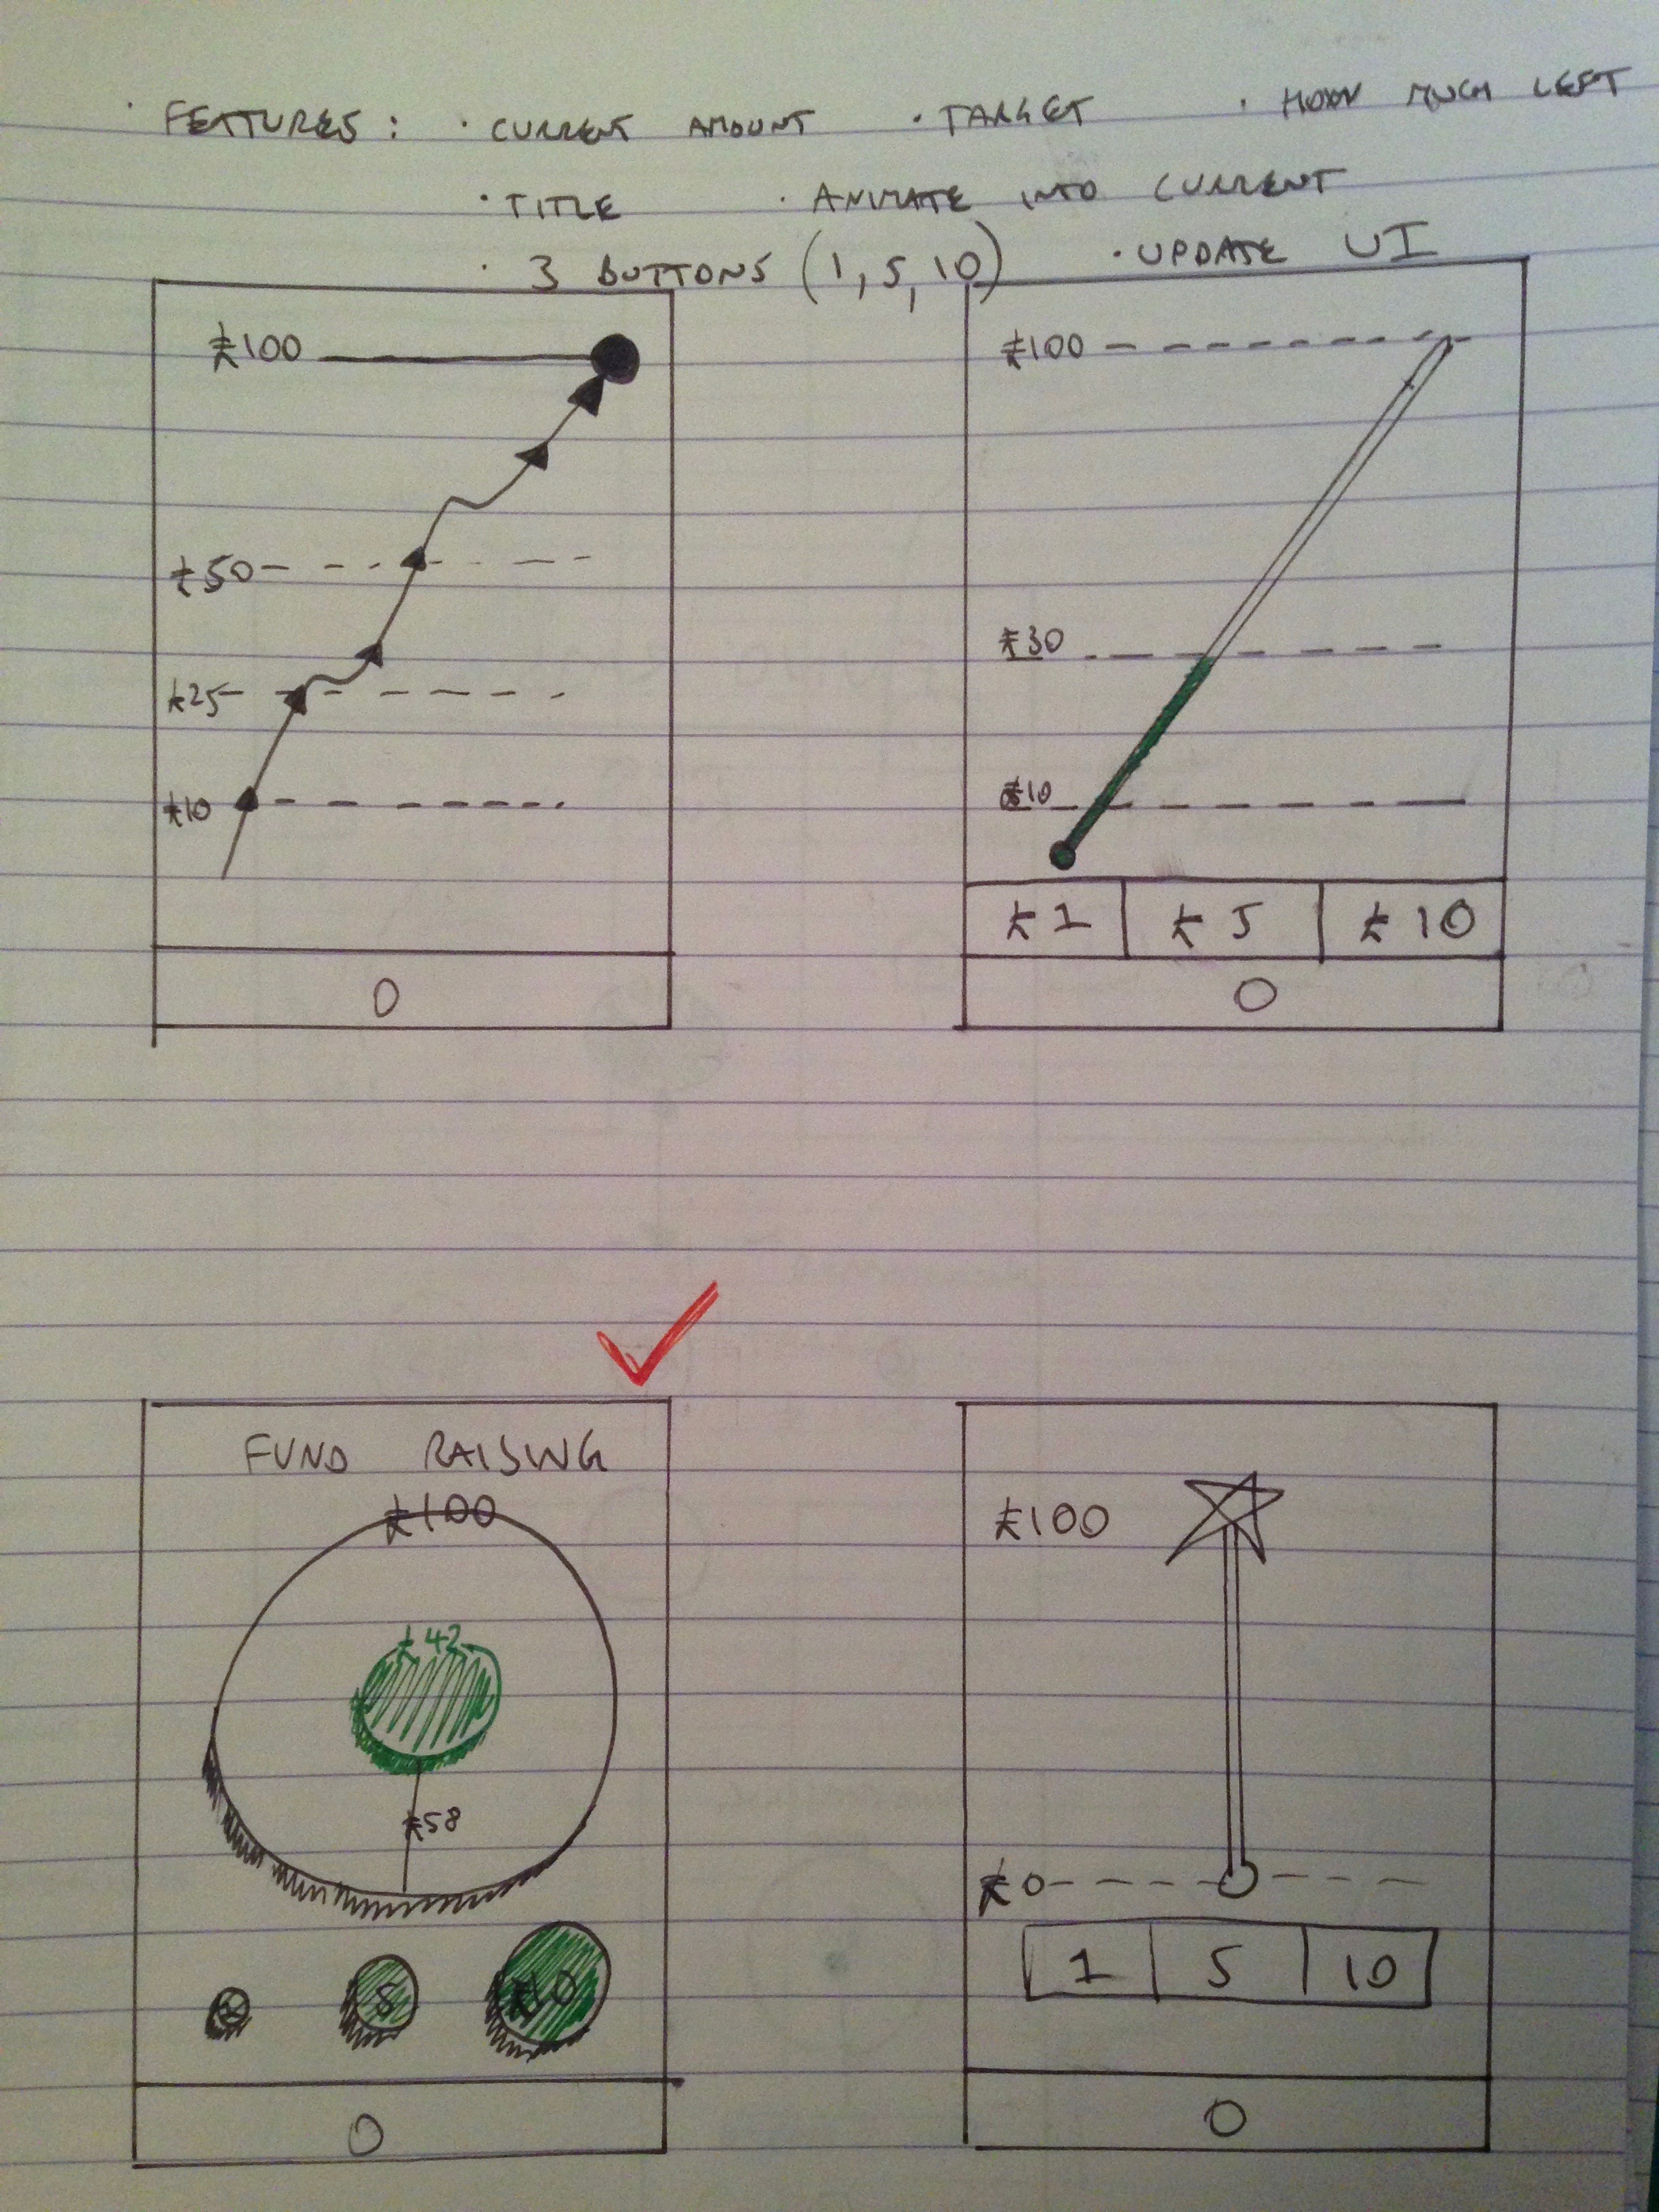 · FEATURES: · CURRENT AMOUNT · TARGET · HOW MUCH LEFT
· TITLE · ANIMATE INTO CURRENT
· 3 BUTTONS (1, 5, 10) · UPDATE UI
£100
£50
£25
£10
O
£100
£30
£10
£1 £5 £10
O
FUND RAISING
£100
£42
£58
5 £10
O
£100
£0
1 5 10
O